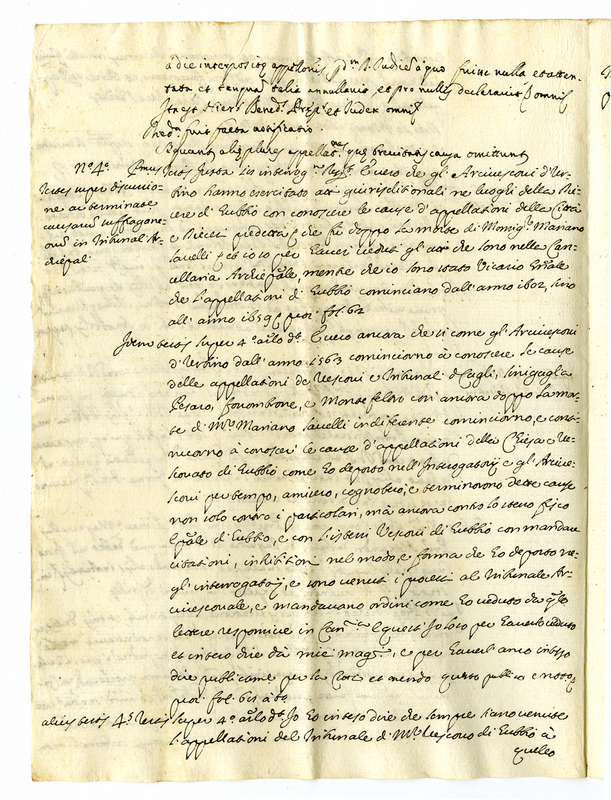 a die interpositæ appellonis, ... Judicis à quo fuisse nulla et atten-
tata et tanquam talia annullavit, et pro nullis declaravit omni
Ita est ... Bened. ... et Judex
fuit facta notificatio.
et quam aliæ plures appellat.nes quæ brevitatis causa omittunt
N.o 4.o Primus Testis juxta ... interrog. ... È vero che gl'Arcivescovi d'Ur-
Testes super discussio- bino hanno esercitato atti giurisditionali ne luoghi della Dio-
ne ac terminatione cese di Eubbio con conoscere le cause d'appellationi della Città
causarum suffragane- e Diocesi predetta che fù doppo la morte di Monsig. Mariano
orum in Tribunal Ar- Savelli, e ciò io so per haver veduti gl'atti che sono nella Can-
chiepal cellaria Archiepale, mentre che io sono stato Vicario Gnale
che l'appellationi di Eubbio cominciano dall'anno 1602, sino
all'anno 1659 fol. 62
Idem testis super 4.o È vero ancora che si come gl'Arcivescovi
d'Urbino dall'anno 1563 cominciorno à conoscere le cause
delle appellationi de Vescovi e Tribunali di Cagli, Sinigaglia
Pesaro, Fossombrone, e Monte feltro così ancora doppo la mor-
te di Mr. Mariano Savelli indiferente cominciorno, e conti-
nuorno à conoscere le cause d'appellationi della Chiesa e Ve-
scovato di Eubbio come ho deposto nell'Interrogatorij e gl'Arcive-
scovi per tempo, amisero, cognobero, e terminorono dette cause
non solo contro i particolari, mà ancora contro lo stesso fisco
Epale di Eubbio, e con l'istessi Vescovi di Eubbio con mandare
citationi, inhibitioni nel modo, e forma che ho deposto ne-
gl'interrogatorij, e sono venuti i processi al Tribunale Ar-
civescovale, e mandavano ordini come ho veduto da qlle
lettere responsive in Canc. E questo io lo so per haverlo veduto
et inteso dire da miei magri, e per haverl'anco inteso
dire publicame. per la Corte et essendo questo publico e notorio
fol. 61 à to.
alius testis 4.s Testis super 4.o Io ho inteso dire che sempre siano venute
l'appellationi del Tribunale di Mr. Vescovo di Eubbio à
quello